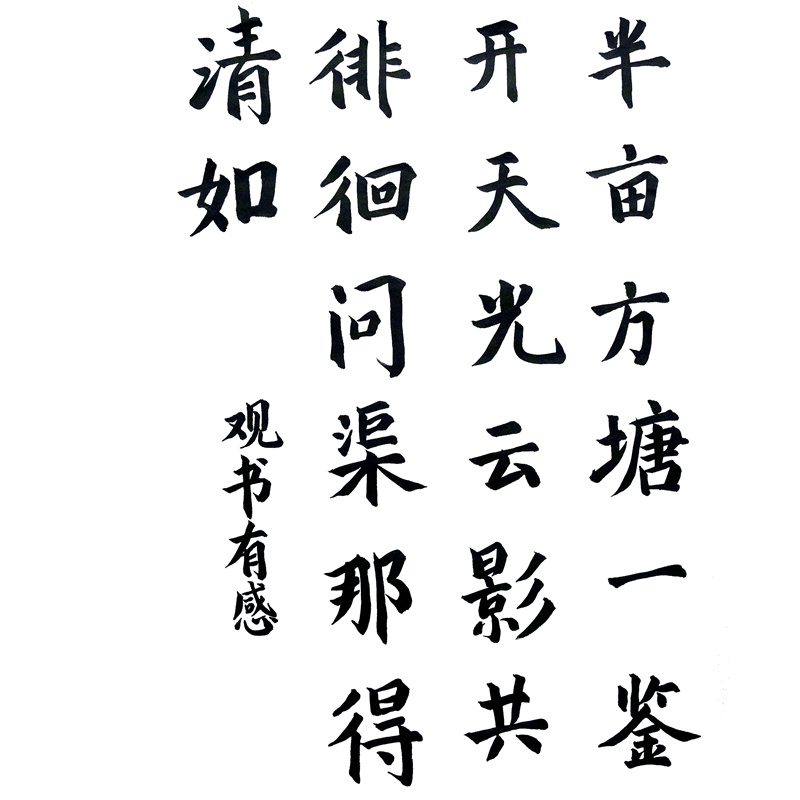 半亩方塘一鉴
开天光云影共
徘徊问渠那得
清如
观书有感